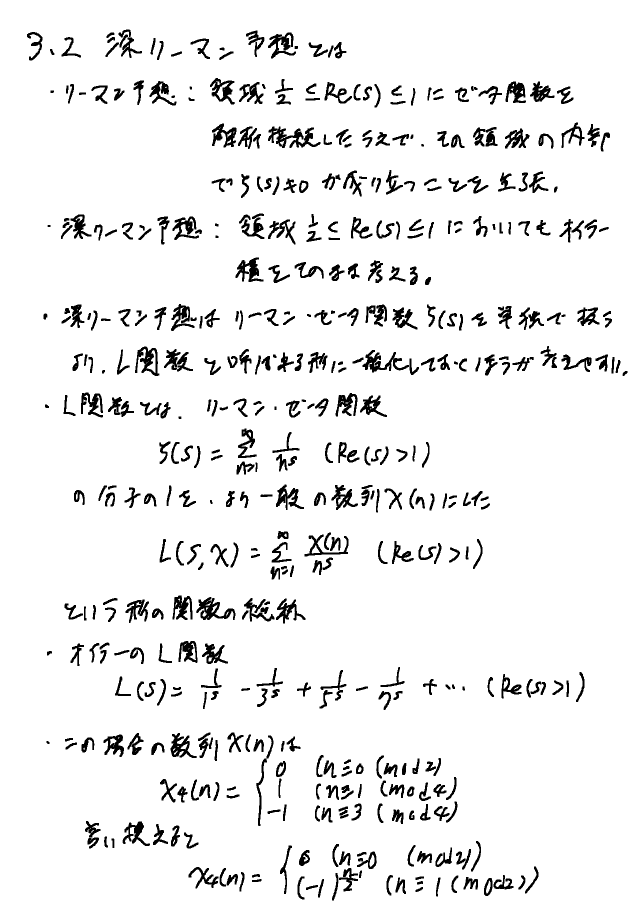 3.2 深リーマン予想とは
・リーマン予想：領域 1/2 ≤ Re(s) ≤ 1 にゼータ関数を
解析接続したうえで、その領域の内部
でζ(s)≠0 が成り立つことを主張。
・深リーマン予想：領域 1/2 ≤ Re(s) ≤ 1 においてもオイラー
積をそのまま考える。
・深リーマン予想はリーマン・ゼータ関数ζ(s)を単独で扱う
より、L関数と呼ばれる形に一般化しておくほうが考えやすい。
・L関数とは、リーマン・ゼータ関数
ζ(s) = Σ_{n=1}^{∞} 1/n^s (Re(s)>1)
の分子の1を、より一般の数列χ(n)にした
L(s,χ) = Σ_{n=1}^{∞} χ(n)/n^s (Re(s)>1)
という形の関数の総称
・オイラーのL関数
L(s) = 1/1^s - 1/3^s + 1/5^s - 1/7^s + … (Re(s)>1)
・この場合の数列χ(n)は
χ4(n) = { 0 (n≡0 (mod 2)
1 (n≡1 (mod 4)
-1 (n≡3 (mod 4)
言い換えると
χ4(n) = { 0 (n≡0 (mod 2))
(-1)^{(n-1)/2} (n≡1 (mod 2))